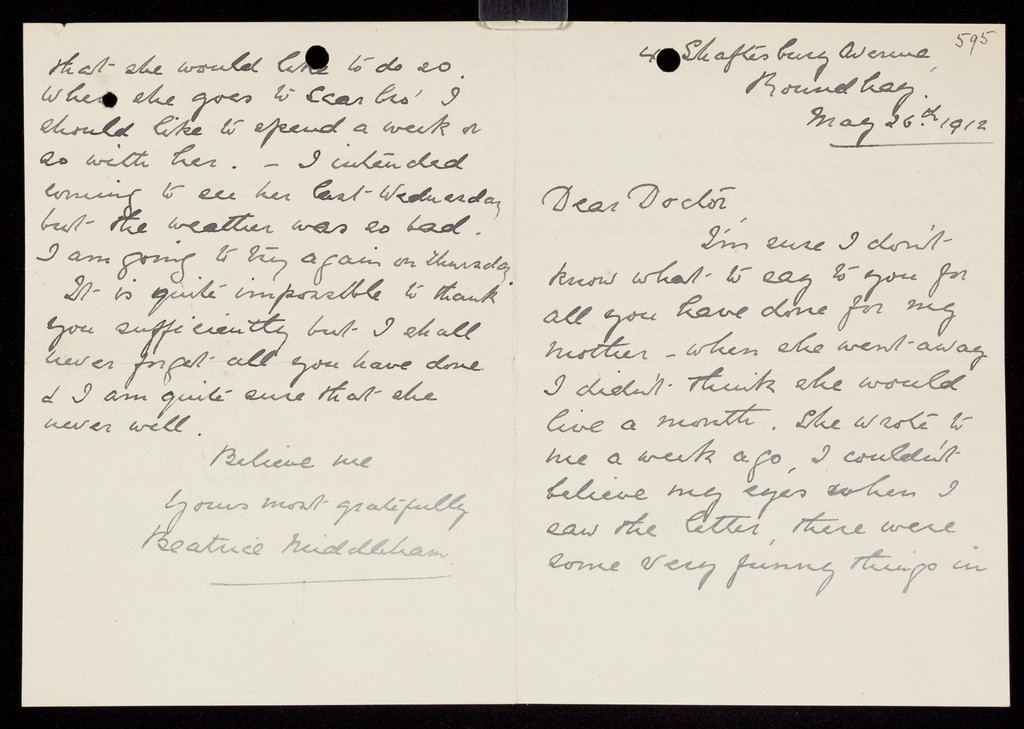 595
4 Shaftesbury Avenue,
Roundhay.
May 26th 1912
Dear Doctor,
I'm sure I don't
know what to say to you for
all you have done for my
mother - when she went away
I didn't think she would
live a month. She wrote to
me a week ago, I couldn't
believe my eyes when I
saw the letter, there were
some very funny things in
that she would like to do so.
When she goes to Scarbro' I
should like to spend a week or
so with her. - I intended
coming to see her last Wednesday
but the weather was so bad.
I am going to try again on Thursday.
It is quite impossible to thank
you sufficiently but I shall
never forget all you have done
& I am quite sure that she
never will.
Believe me
Yours most gratefully
Beatrice Middleham